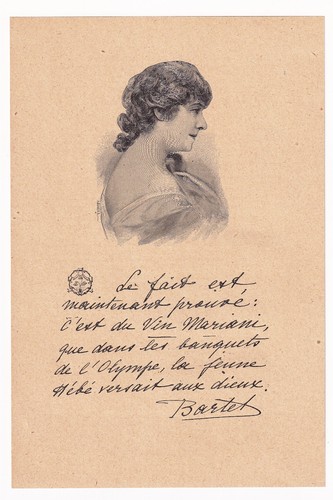 Le fait est
maintenant prouvé:
C'est du Vin Mariani,
que dans les banquets
de l'Olympe, la jeune
Hébé versait aux dieux.
Bartet